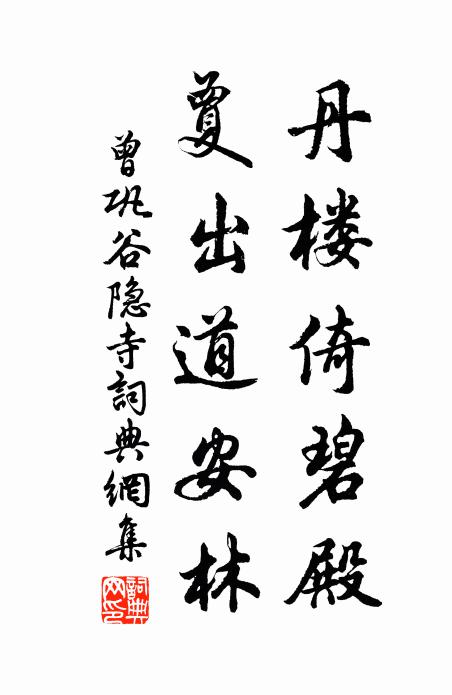 丹楼倚碧殿
夐出道安林
曾巩谷隐寺詞典網集
詞典
网印